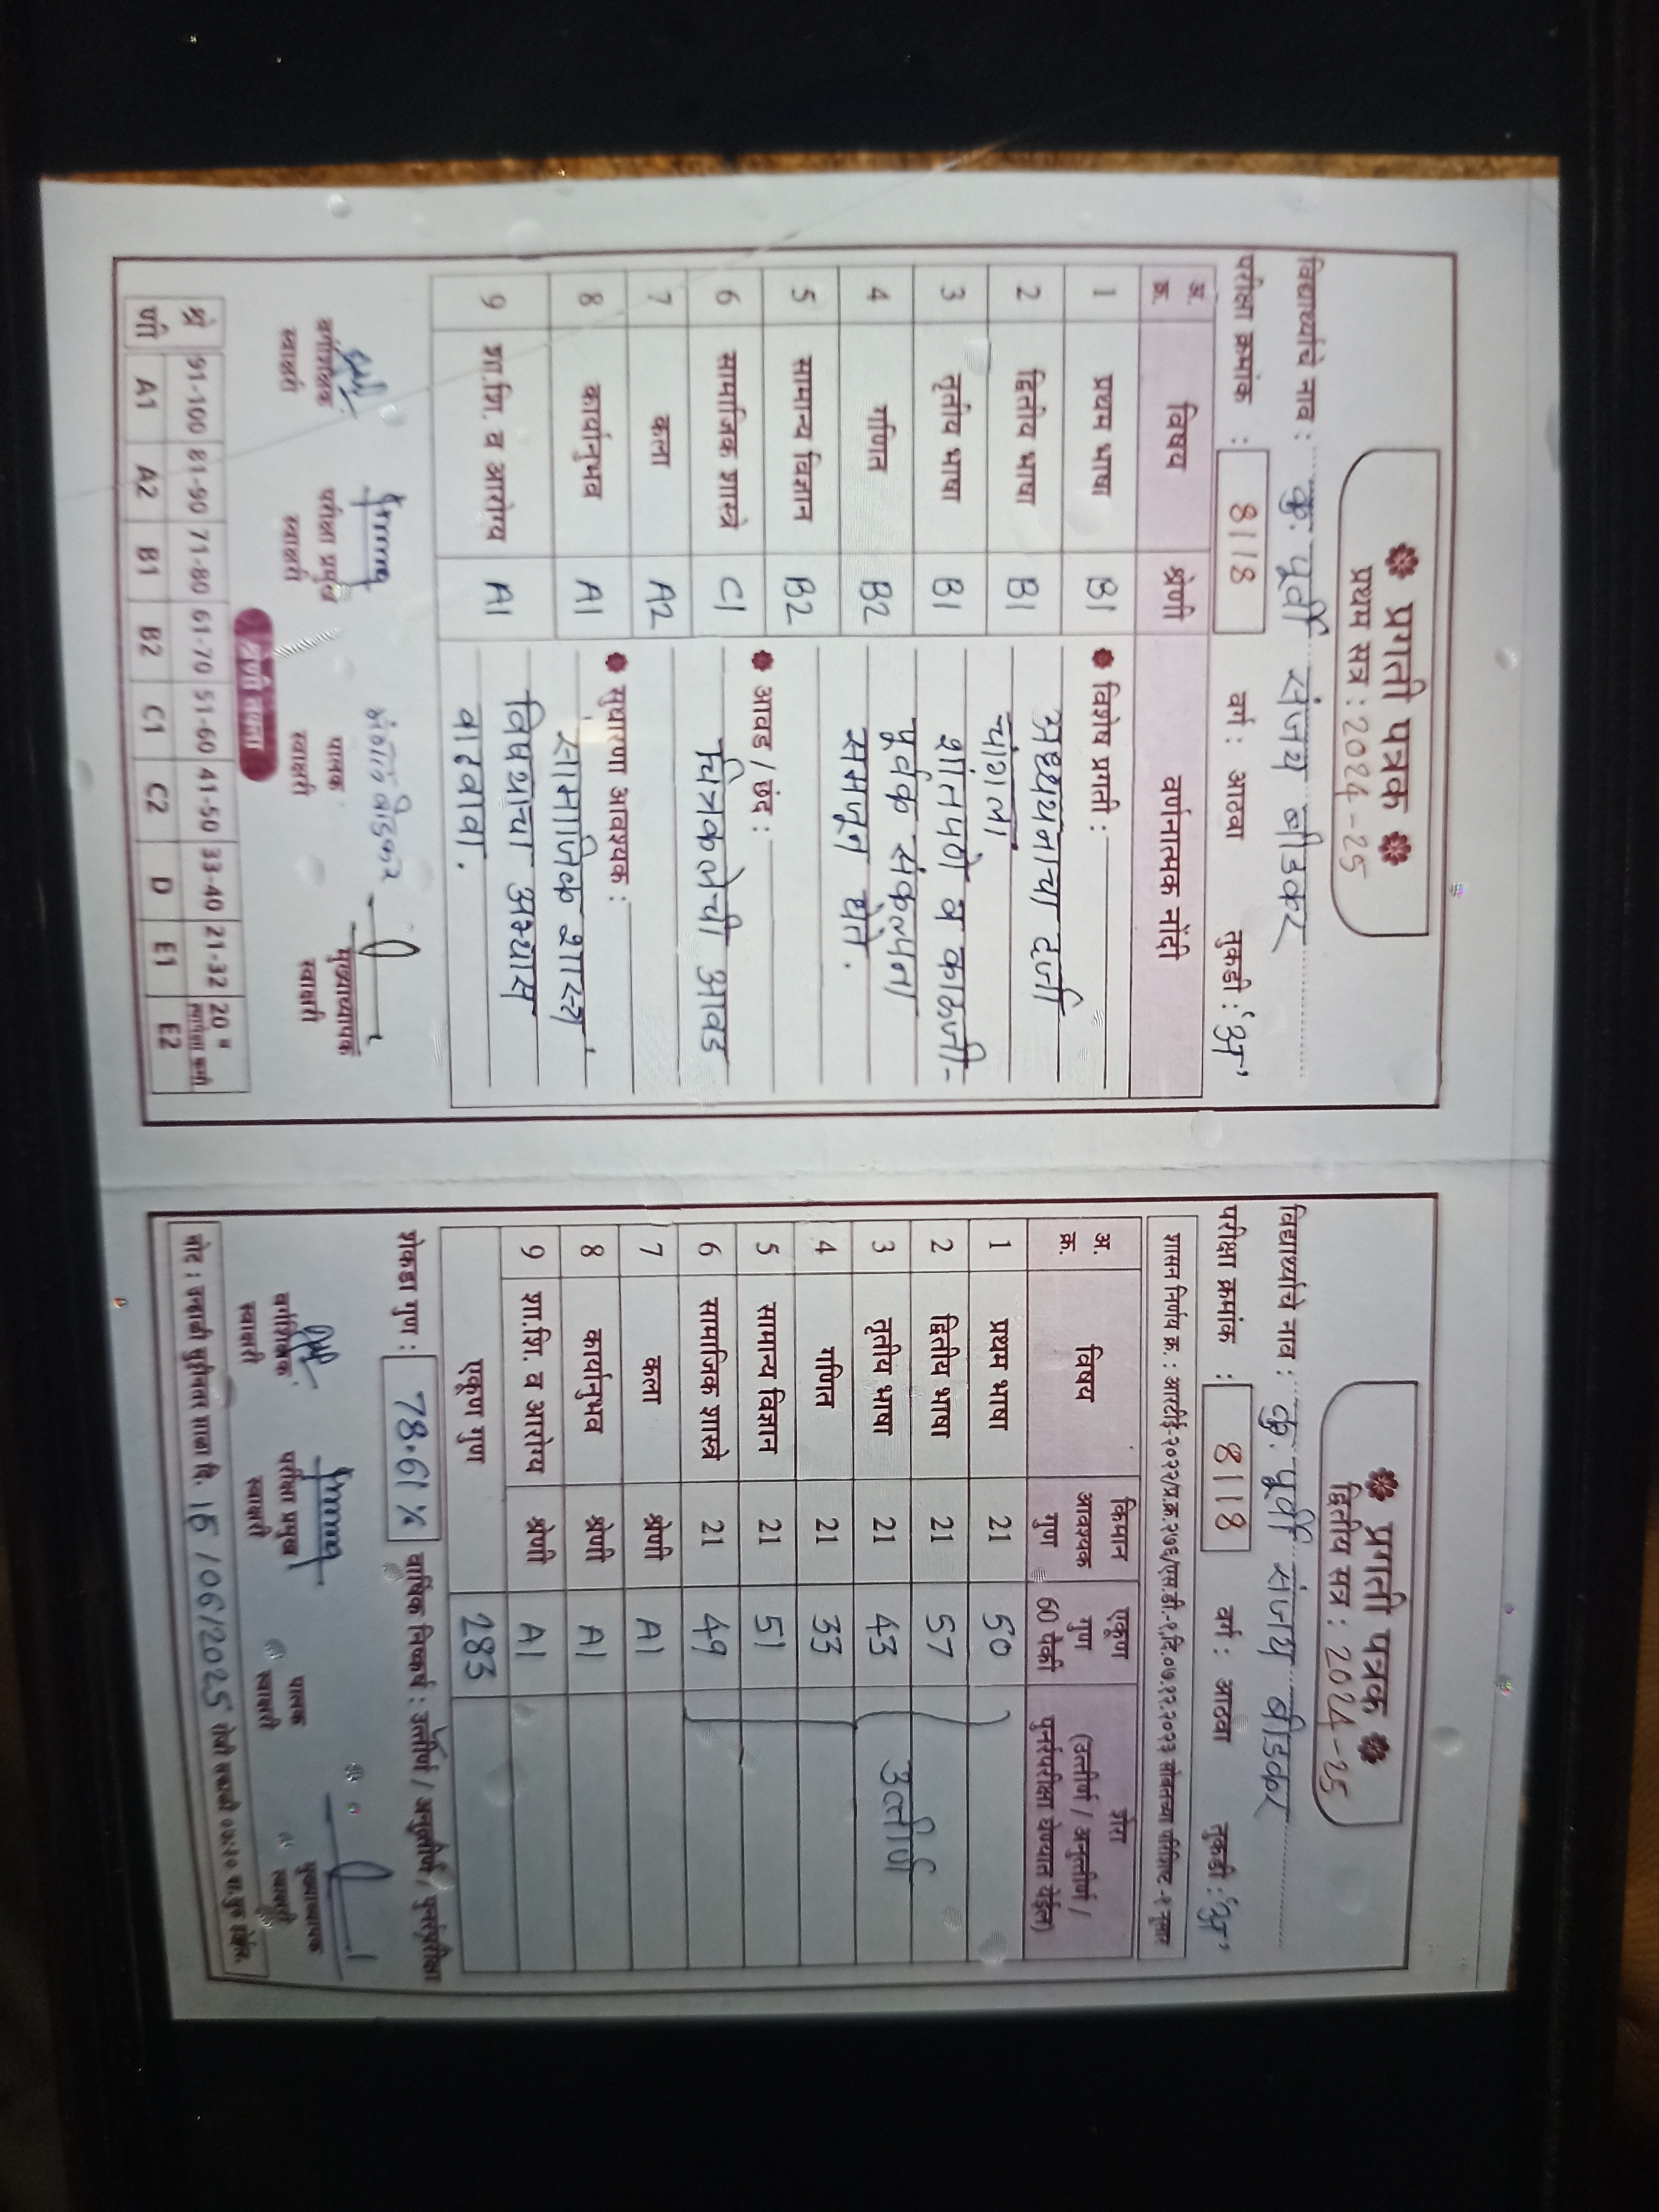 ❋ प्रगती पत्रक ❋
प्रथम सत्र : 2024-25
विद्यार्थ्याचे नाव : कु. पूर्वी संजय बीडकर
परीक्षा क्रमांक : 8118 वर्ग : आठवा तुकडी : 'अ'
अ. क्र. विषय श्रेणी वर्णनात्मक नोंदी
1 प्रथम भाषा B1
2 द्वितीय भाषा B1
3 तृतीय भाषा B1
4 गणित B2
5 सामान्य विज्ञान B2
6 सामाजिक शास्त्रे C1
7 कला A2
8 कार्यानुभव A1
9 शा.शि. व आरोग्य A1
विशेष प्रगती :
अध्ययनाचा दर्जा
चांगला
शांतपणे व काळजी-
पूर्वक संकल्पना
समजून घेते.
आवड / छंद :
चित्रकलेची आवड
सुधारणा आवश्यक :
सामाजिक शास्त्र
विषयाचा अभ्यास
वाढवावा.
वर्गशिक्षक स्वाक्षरी
परीक्षा प्रमुख स्वाक्षरी
बीडकर
पालक स्वाक्षरी
मुख्याध्यापक स्वाक्षरी
श्रेणी तक्ता
91-100 81-90 71-80 61-70 51-60 41-50 33-40 21-32 20 व त्यापेक्षा कमी
श्रेणी A1 A2 B1 B2 C1 C2 D E1 E2
❋ प्रगती पत्रक ❋
द्वितीय सत्र : 2024-25
विद्यार्थ्याचे नाव : कु. पूर्वी संजय बीडकर
परीक्षा क्रमांक : 8118 वर्ग : आठवा तुकडी : 'अ'
शासन निर्णय क्र. : आरटीई-२०२२/प्र.क्र.२७६/एस.डी.-१,दि.०७.१२.२०२३ सोबतच्या परिशिष्ट -१ नुसार
अ. क्र. विषय किमान आवश्यक गुण एकूण गुण 60 पैकी शेरा (उत्तीर्ण / अनुत्तीर्ण / पुनर्परीक्षा घेण्यात येईल)
1 प्रथम भाषा 21 50
2 द्वितीय भाषा 21 57
3 तृतीय भाषा 21 43 उत्तीर्ण
4 गणित 21 33
5 सामान्य विज्ञान 21 51
6 सामाजिक शास्त्रे 21 49
7 कला श्रेणी A1
8 कार्यानुभव श्रेणी A1
9 शा.शि. व आरोग्य श्रेणी A1
एकूण गुण 283
शेकडा गुण : 78.61% वार्षिक निष्कर्ष : उत्तीर्ण / अनुत्तीर्ण / पुनर्परीक्षा
वर्गशिक्षक स्वाक्षरी
परीक्षा प्रमुख स्वाक्षरी
पालक स्वाक्षरी
मुख्याध्यापक स्वाक्षरी
नोट : उन्हाळी सुट्टीनंतर शाळा दि. 16 /06/2025 रोजी सकाळी ०७:२० वा.सुरु होईल.